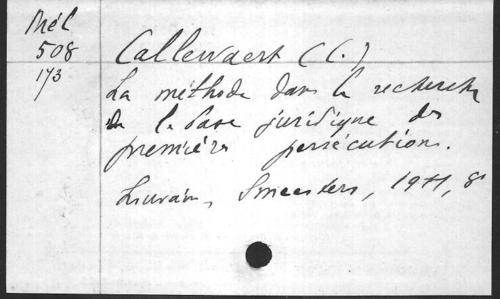 Mél
508
173
Callewaert (C.)
La méthode dans la recherche
de la base juridique des
premières persécutions.
Louvain, Smeesters, 1911, 8°